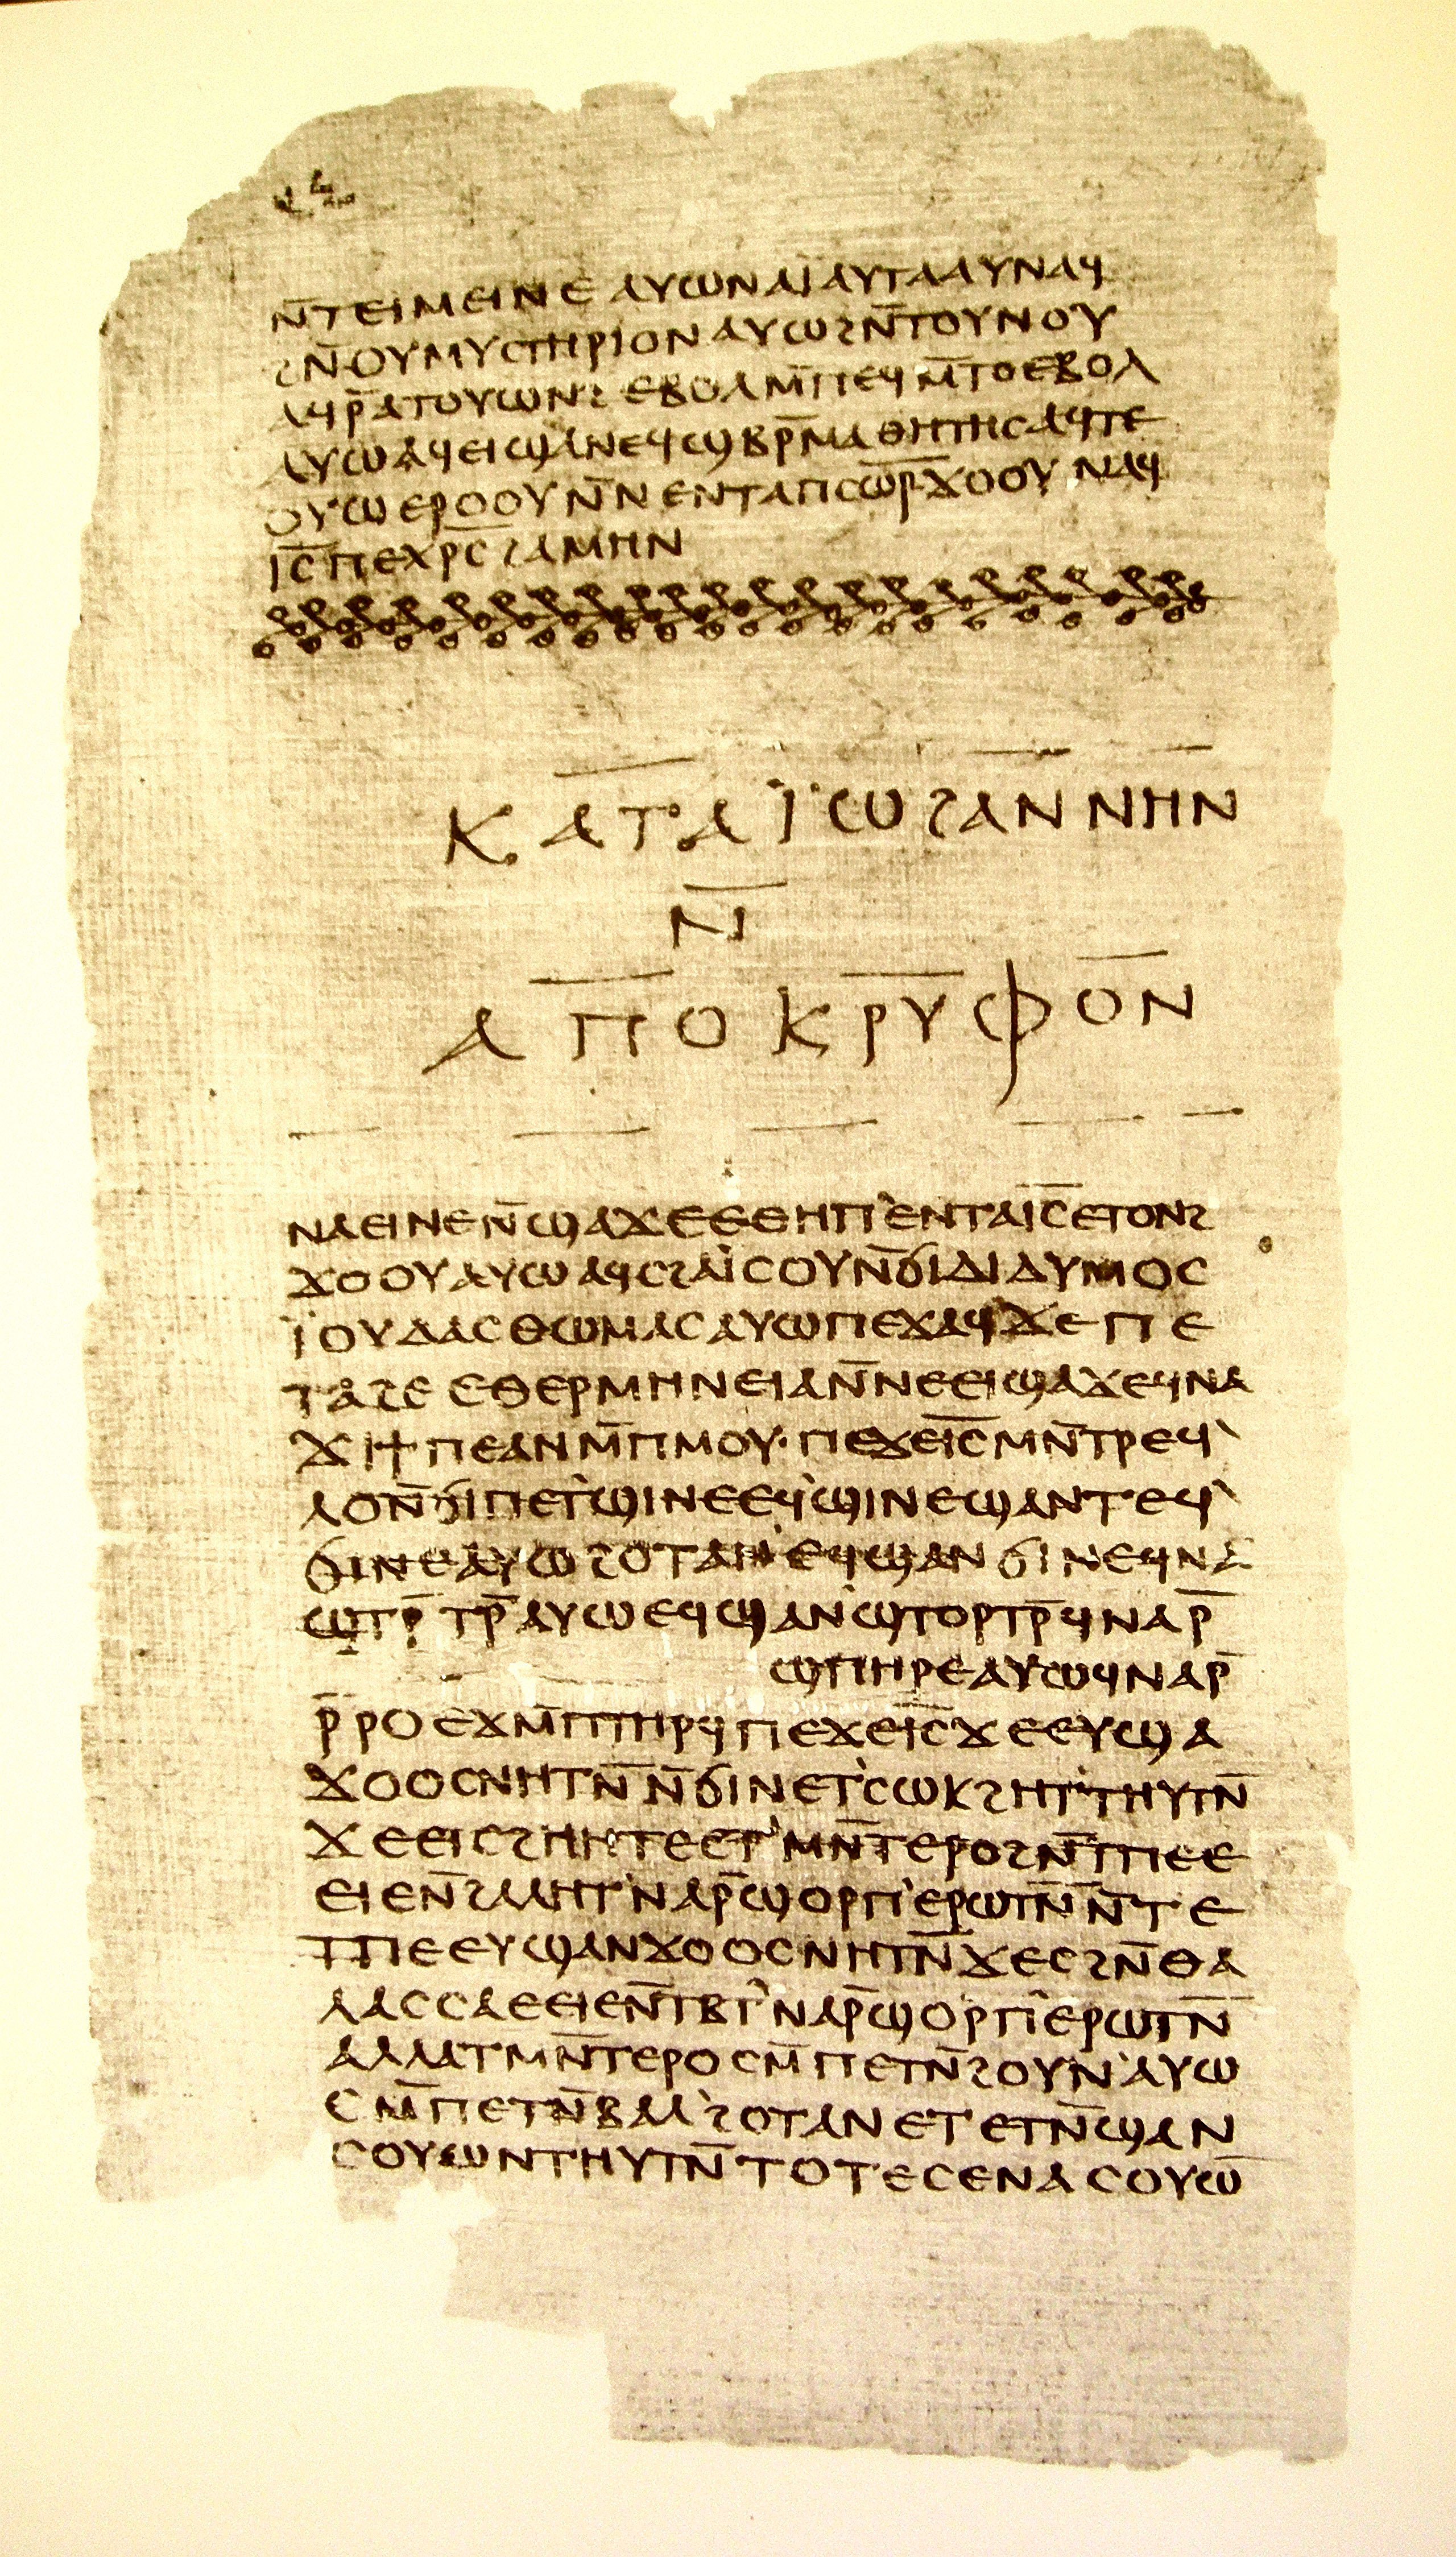 ⲛ̄ⲧⲉⲓⲙⲉⲓⲛⲉ ⲁⲩⲱ ⲛⲁⲓ̈ ⲁⲩⲧⲁⲁⲩ ⲛⲁϥ
ϩⲛ̄ⲟⲩⲙⲩⲥⲧⲏⲣⲓⲟⲛ ⲁⲩⲱ ϩⲛ̄ⲧⲟⲩⲛⲟⲩ
ⲁϥⲣ̄ⲁⲧⲟⲩⲱⲛϩ ⲉⲃⲟⲗ ⲙ̄ⲡⲉϥⲙ̄ⲧⲟ ⲉⲃⲟⲗ
ⲁⲩⲱ ⲁϥⲉⲓ ϣⲁ ⲛⲉϥϣⲃⲣ̄ⲙⲁⲑⲏⲧⲏⲥ ⲁϥⲧⲉ
ⲟⲩⲱ ⲉⲣⲟⲟⲩ ⲛ̄ⲛⲉⲛⲧⲁⲡⲥⲱ̄ⲣ̄ ϫⲟⲟⲩ ⲛⲁϥ
ⲓ̄ⲥ̄ ⲡⲉⲭⲣ̄ⲥ̄ ϩⲁⲙⲏⲛ
ⲕⲁⲧⲁ ⲓ̈ⲱϩⲁⲛⲛⲏⲛ
ⲛ̄
ⲁⲡⲟⲕⲣⲩⲫⲟⲛ
ⲛⲁⲉⲓ ⲛⲉ ⲛ̄ϣⲁϫⲉ ⲉⲑⲏⲡ' ⲉⲛⲧⲁⲓ̄ⲥ̄ ⲉⲧⲟⲛϩ
ϫⲟⲟⲩ ⲁⲩⲱ ⲁϥⲥϩⲁⲓ̈ⲥⲟⲩ ⲛ̄ϭⲓ ⲇⲓⲇⲩⲙⲟⲥ
ⲓ̈ⲟⲩⲇⲁⲥ ⲑⲱⲙⲁⲥ ⲁⲩⲱ ⲡⲉϫⲁϥ ϫⲉ ⲡⲉ
ⲧⲁϩⲉ ⲉⲑⲉⲣⲙⲏⲛⲉⲓⲁ ⲛ̄ⲛⲉⲉⲓϣⲁϫⲉ ϥⲛⲁ
ϫⲓϯⲡⲉ ⲁⲛ ⲙ̄ⲡⲙⲟⲩ· ⲡⲉϫⲉ ⲓ̄ⲥ̄ ⲙⲛ̄ⲧⲣⲉϥ'
ⲗⲟ ⲛ̄ϭⲓ ⲡⲉⲧ'ϣⲓⲛⲉ ⲉϥ'ϣⲓⲛⲉ ϣⲁⲛⲧⲉϥ'
ϭⲓⲛⲉ ⲁⲩⲱ ϩⲟⲧⲁⲛ' ⲉϥϣⲁⲛϭⲓⲛⲉ ϥⲛⲁ
ϣⲧⲣ̄ⲧⲣ̄ ⲁⲩⲱ ⲉϥϣⲁⲛ'ϣⲧⲟⲣⲧⲣ̄ ϥⲛⲁⲣ̄
ϣⲡⲏⲣⲉ ⲁⲩⲱ ϥⲛⲁⲣ̄
ⲣ̄ⲣⲟ ⲉϫⲙ̄ ⲡⲧⲏⲣϥ ⲡⲉϫⲉ ⲓ̄ⲥ̄ ϫⲉ ⲉⲩϣⲁ
ϫⲟⲟⲥ ⲛⲏⲧⲛ̄ ⲛ̄ϭⲓ ⲛⲉⲧ'ⲥⲱⲕ ϩⲏⲧ' ⲧⲏⲩⲧⲛ̄
ϫⲉ ⲉⲓⲥϩⲏⲏⲧⲉ ⲉⲧ'ⲙⲛ̄ⲧⲉⲣⲟ ϩⲛ̄ ⲧⲡⲉ ⲉ
ⲉⲓⲉ ⲛ̄ϩⲁⲗⲏⲧ' ⲛⲁⲣ̄ϣⲟⲣⲡ' ⲉⲣⲱⲧⲛ̄ ⲛ̄ⲧⲉ
ⲧⲡⲉ ⲉⲩϣⲁⲛϫⲟⲟⲥ ⲛⲏⲧⲛ̄ ϫⲉ ⲥϩⲛ̄ ⲑⲁ
ⲗⲁⲥⲥⲁ ⲉⲉⲓⲉ ⲛ̄ⲧⲃⲧ' ⲛⲁⲣ̄ϣⲟⲣⲡ' ⲉⲣⲱⲧⲛ̄
ⲁⲗⲗⲁ ⲧⲙⲛ̄ⲧⲉⲣⲟ ⲥⲙ̄ⲡⲉⲧⲛ̄ϩⲟⲩⲛ' ⲁⲩⲱ
ⲥⲙ̄ⲡⲉⲧⲛ̄ⲃⲁⲗ' ϩⲟⲧⲁⲛ ⲉⲧⲉⲧⲛ̄ϣⲁⲛ
ⲥⲟⲩⲱⲛ ⲧⲏⲩⲧⲛ̄ ⲧⲟⲧⲉ ⲥⲉⲛⲁⲥⲟⲩⲱ̄